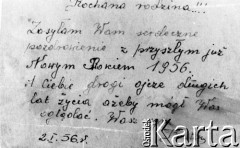 Kochana rodzina...!!
Zasyłam Wam serdeczne
pozdrowienie z przyszłym już
Nowym Rokiem 1956.
A Ciebie drogi ojcze długich
lat życia ażeby mógł Was
oglądać. Wasz
2.I.56.r.
Ośrodek
Karta